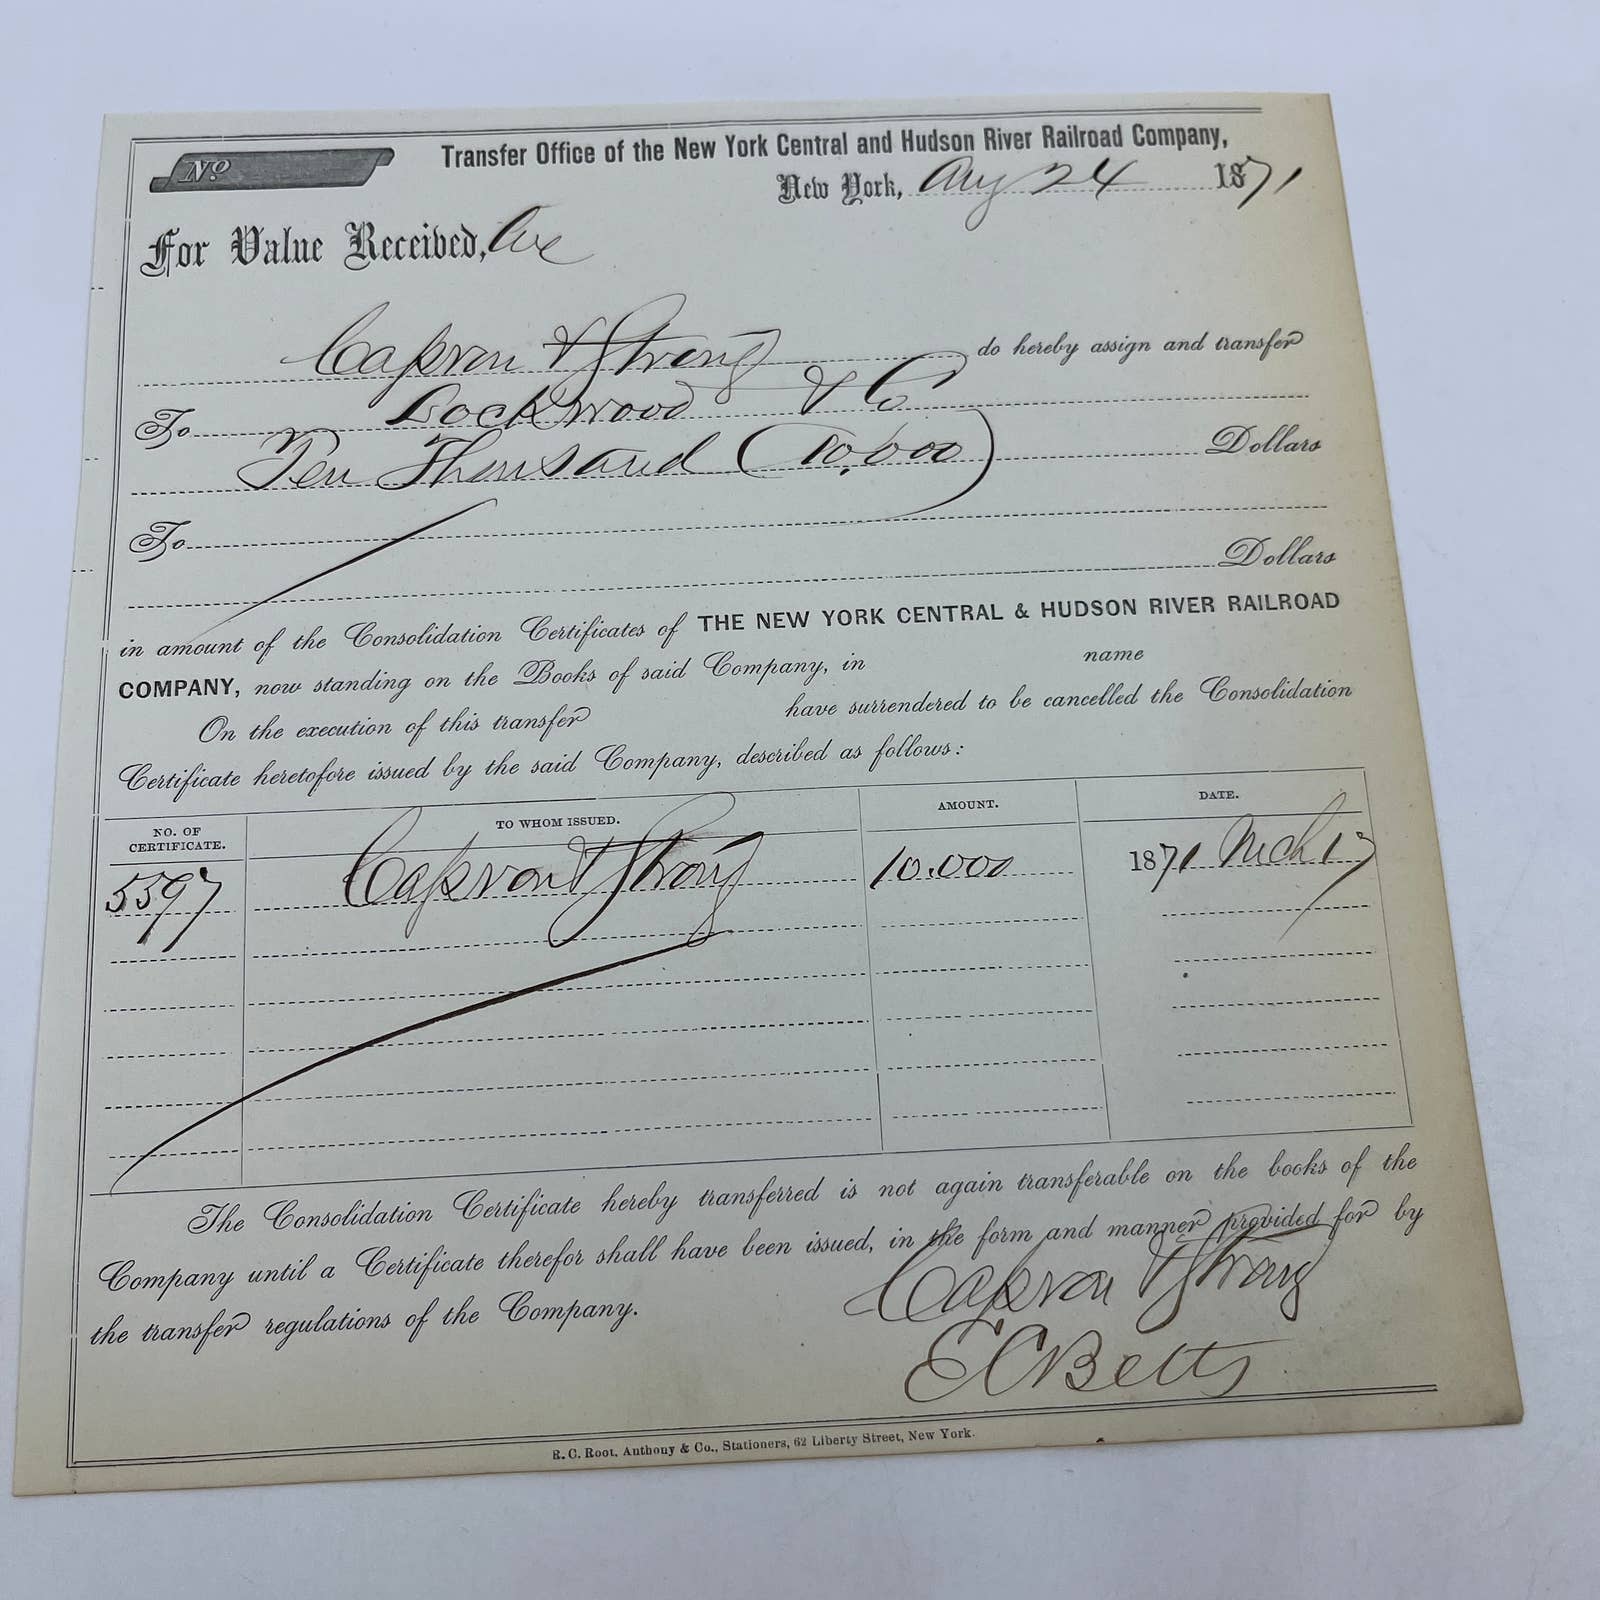 No
Transfer Office of the New York Central and Hudson River Railroad Company,
New York, Aug 24 1871
For Value Received, We
Capron & Strong do hereby assign and transfer
To Lockwood & Co
Ten Thousand (10,000) Dollars
To
Dollars
in amount of the Consolidation Certificates of THE NEW YORK CENTRAL & HUDSON RIVER RAILROAD
COMPANY, now standing on the Books of said Company, in name
On the execution of this transfer have surrendered to be cancelled the Consolidation
Certificate heretofore issued by the said Company, described as follows:
NO. OF CERTIFICATE. TO WHOM ISSUED. AMOUNT. DATE.
5597 Capron & Strong 10.000 1871 Mch 17
The Consolidation Certificate hereby transferred is not again transferable on the books of the
Company until a Certificate therefor shall have been issued, in the form and manner provided for by
the transfer regulations of the Company.
Capron & Strong
E C Betts
R. C. Root, Anthony & Co., Stationers, 62 Liberty Street, New York.